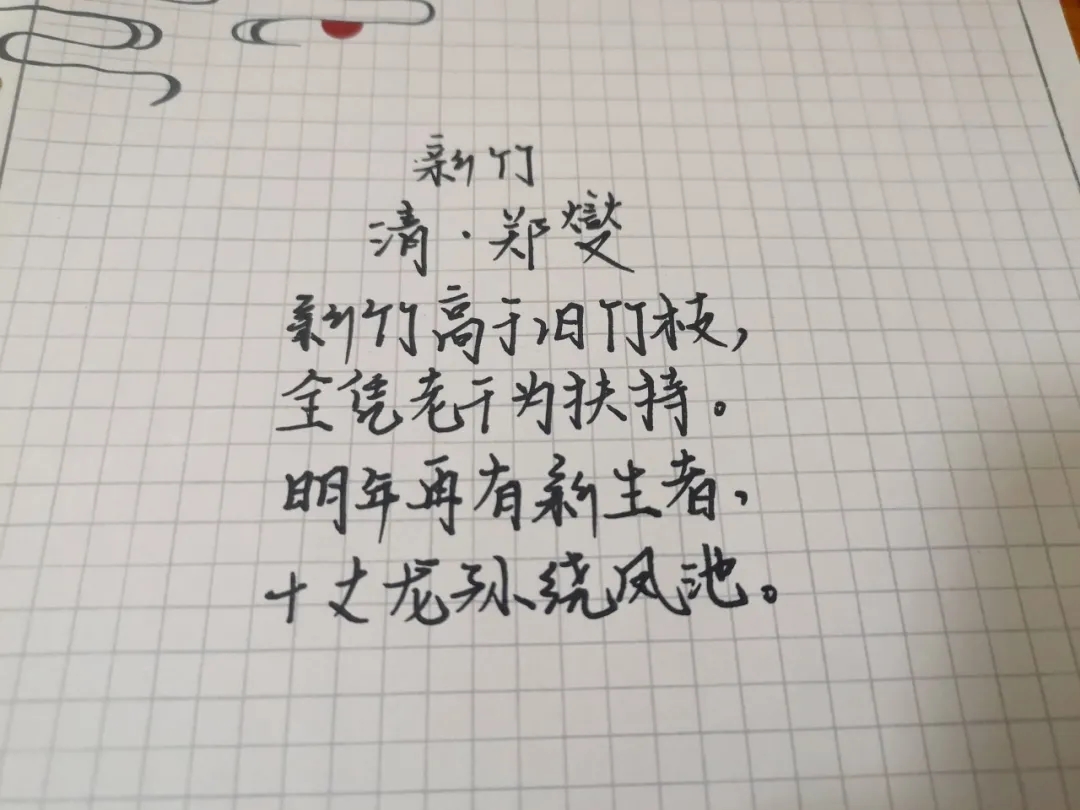 新竹
清·郑燮
新竹高于旧竹枝,
全凭老干为扶持。
明年再有新生者,
十丈龙孙绕凤池。